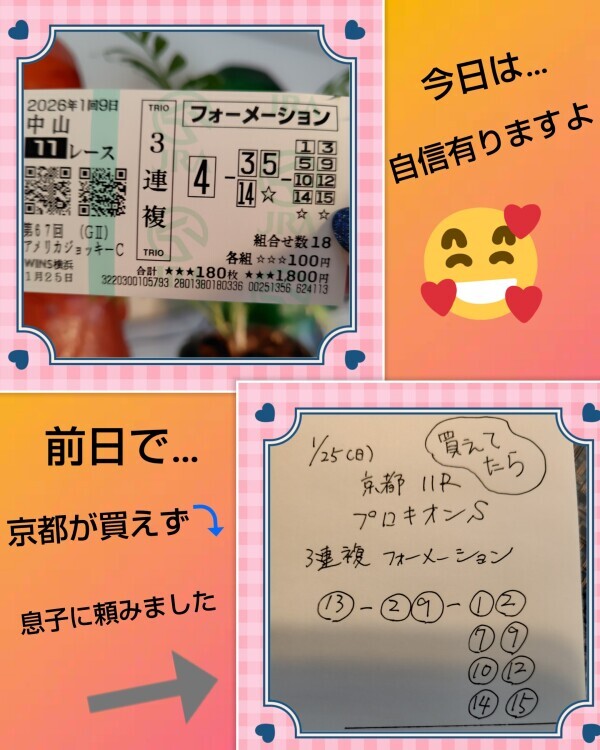 2026年1回9日
中山
11レース
第67回 (GⅡ)
アメリカジョッキーC
WINS横浜
1月25日
TRIO
3連複
TRIO
フォーメーション
4 - 3 5 - 1 3
14 ☆ 5 9
10 12
14 15
☆ ☆
組合せ数18
各組 ☆☆☆100円
合計 ★★★180枚 ★★★1,800円
3220300105793 2801380180336 00251356 624113
JRA
今日は...
自信有りますよ
前日で...
京都が買えず
息子に頼みました
1/25(日)
買えてたら
京都 11R
プロキオンS
3連複 フォーメーション
⑬ - ② ⑨ - ① ②
⑦ ⑨
⑩ ⑫
⑭ ⑮